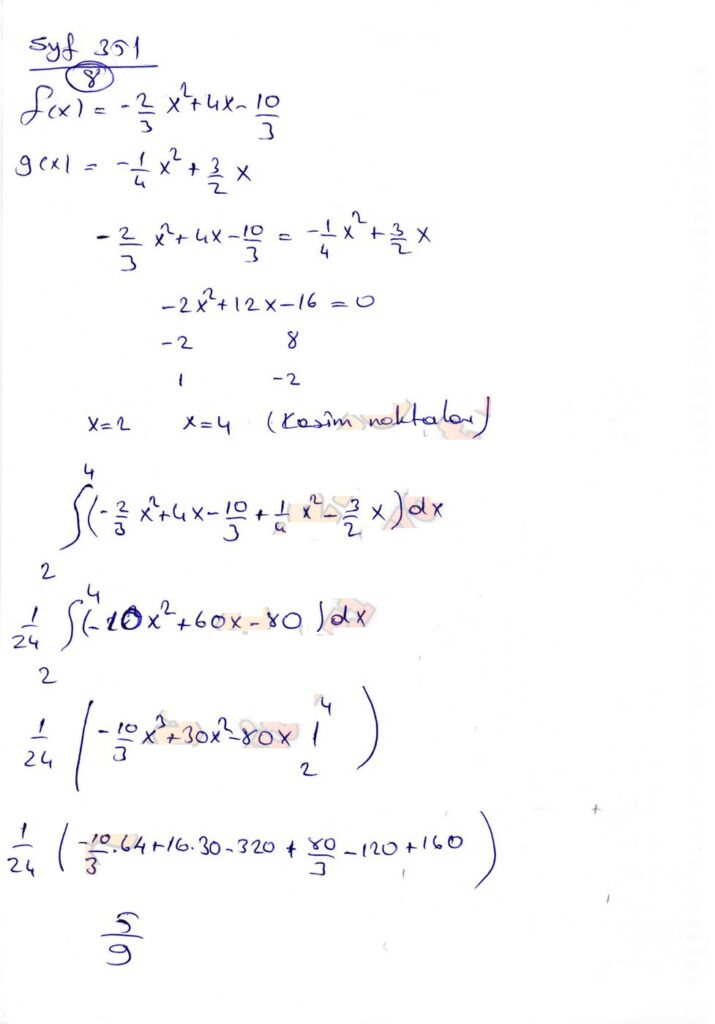 Syf 351
8
f(x) = -2/3 x² + 4x - 10/3
g(x) = -1/4 x² + 3/2 x
-2/3 x² + 4x - 10/3 = -1/4 x² + 3/2 x
-2x² + 12x - 16 = 0
-2 8
1 -2
x=2 x=4 (Kesim noktaları)
∫₂⁴ (-2/3 x² + 4x - 10/3 + 1/4 x² - 3/2 x) dx
1/24 ∫₂⁴ (-10x² + 60x - 80) dx
1/24 (-10/3 x³ + 30x² - 80x |₂⁴)
1/24 (-10/3 . 64 + 16.30 - 320 + 80/3 - 120 + 160)
5/9